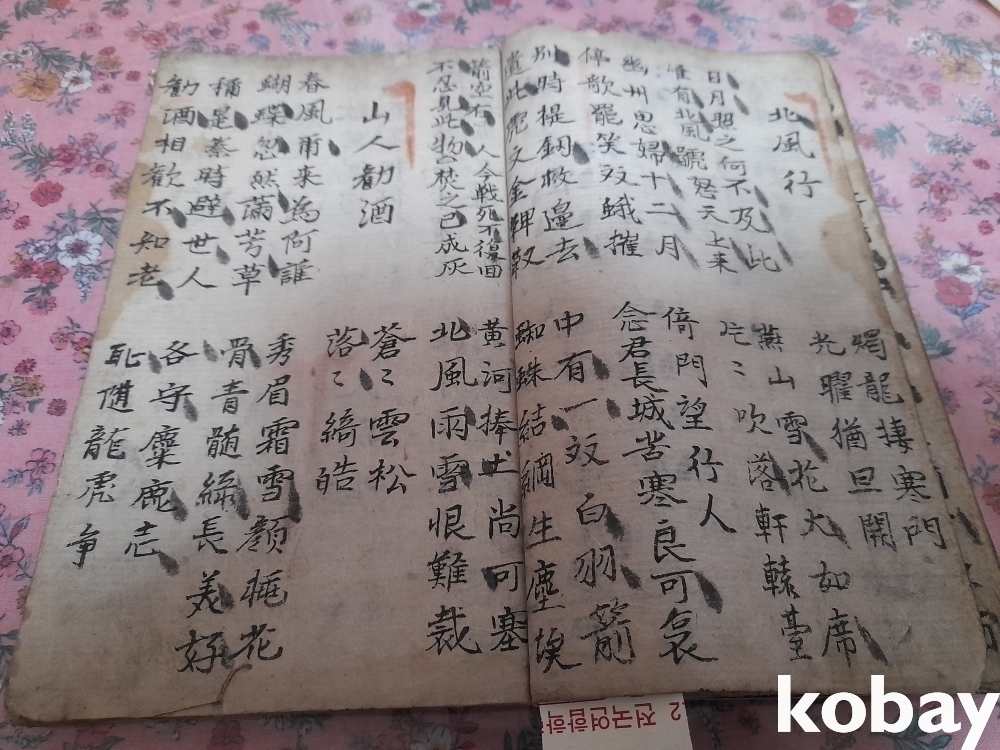 北風行
燭龍棲寒門
光曜猶旦開
日月照之何不及此
惟有北風號怒天上来
燕山雪花大如席
片〻吹落軒轅臺
幽州思婦十二月
停歌罷笑双蛾摧
倚門望行人
念君長城苦寒良可哀
別時提釰救邊去
遺此虎文金鞞靫
中有一双白羽箭
蜘蛛結網生塵埃
箭空在 人今戰死不復回
不忍見此物 焚之已成灰
黄河捧土尚可塞
北風雨雪恨難裁
山人勸酒
蒼〻雲松
落〻綺皓
春風甭来為何誰
蝴蝶忽然滿芳草
秀眉霜雪顔桃花
骨青髓綠長美好
稱是秦時避世人
勸酒相歡不知老
各守麋鹿志
恥隨龍虎争
2 전국연합학
kobay